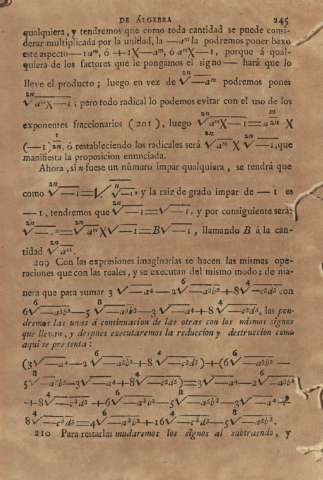 DE ÁLGEBRA 245
qualquiera, y tendremos que como toda cantidad se puede consi-
derar multiplicada por la unidad, la —aᵐ la podremos poner baxo
este aspecto —1aᵐ, ó +1X—aᵐ, ó aᵐX—1, porque á qual-
quiera de los factores que le pongamos el signo — hará que lo
lleve el producto; luego en vez de ²ⁿ√—aᵐ podremos poner
²ⁿ√aᵐX—1; pero todo radical lo podemos evitar con el uso de los
exponentes fraccionarios (201), luego ²ⁿ√aᵐX—1=a^(m/2n) X
(—1)^(1/2n), ó estableciendo los radicales será ²ⁿ√aᵐ X ²ⁿ√—1, que
manifiesta la proposicion enunciada.
Ahora, si n fuese un número impar qualquiera, se tendrá que
como ²ⁿ√—1=√ⁿ√—1, y la raiz de grado impar de —1 es
—1, tendremos que ²ⁿ√—1=√—1, y por consiguiente será:
²ⁿ√—aᵐ=²ⁿ√aᵐX√—1=B√—1, llamando B á la can-
tidad ²ⁿ√aᵐ.
209 Con las expresiones imaginarias se hacen las mismas ope-
raciones que con las reales, y se executan del mismo modo; de ma-
nera que para sumar 3√—a⁴—2⁶√—a²b²+8⁴√—c²d² con
6⁶√—a²b²—5⁸√—a²b²—3√—a⁴+8⁴√—c²d², las pon-
dremos las unas á continuacion de las otras con los mismos signos
que llevan, y despues executaremos la reduccion y destruccion como
aquí se presenta:
(3√—a⁴—2⁶√—a²b²+8⁴√—c²d²)+(6⁶√—a²b²—
5⁸√—a²b²—3√—a⁴+8⁴√—c²d²)=3√—a⁴—2⁶√—a²b²
+8⁴√—c²d²+6⁶√—a²b²—5⁸√—a²b²—3√—a⁴+
8⁴√—c²d²=4⁶√—a²b²+16⁴√—c²d²—5⁸√—a²b².
210 Para restarlas mudaremos los signos al subtraendo, y